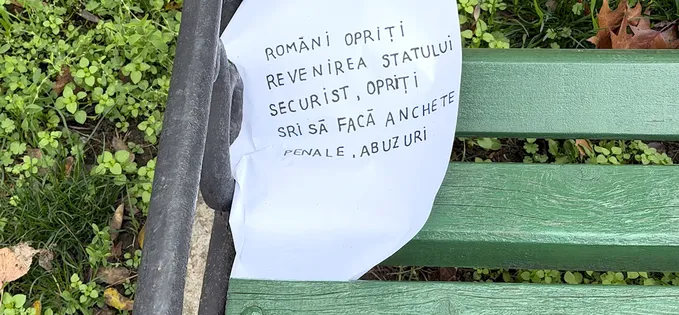 ROMÂNI OPRIȚI
REVENIREA STATULUI
SECURIST, OPRIȚI
SRI SĂ FACĂ ANCHETE
PENALE, ABUZURI